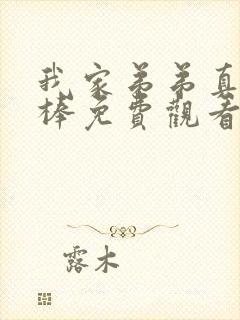 我家弟弟真
棒免費觀看
露木